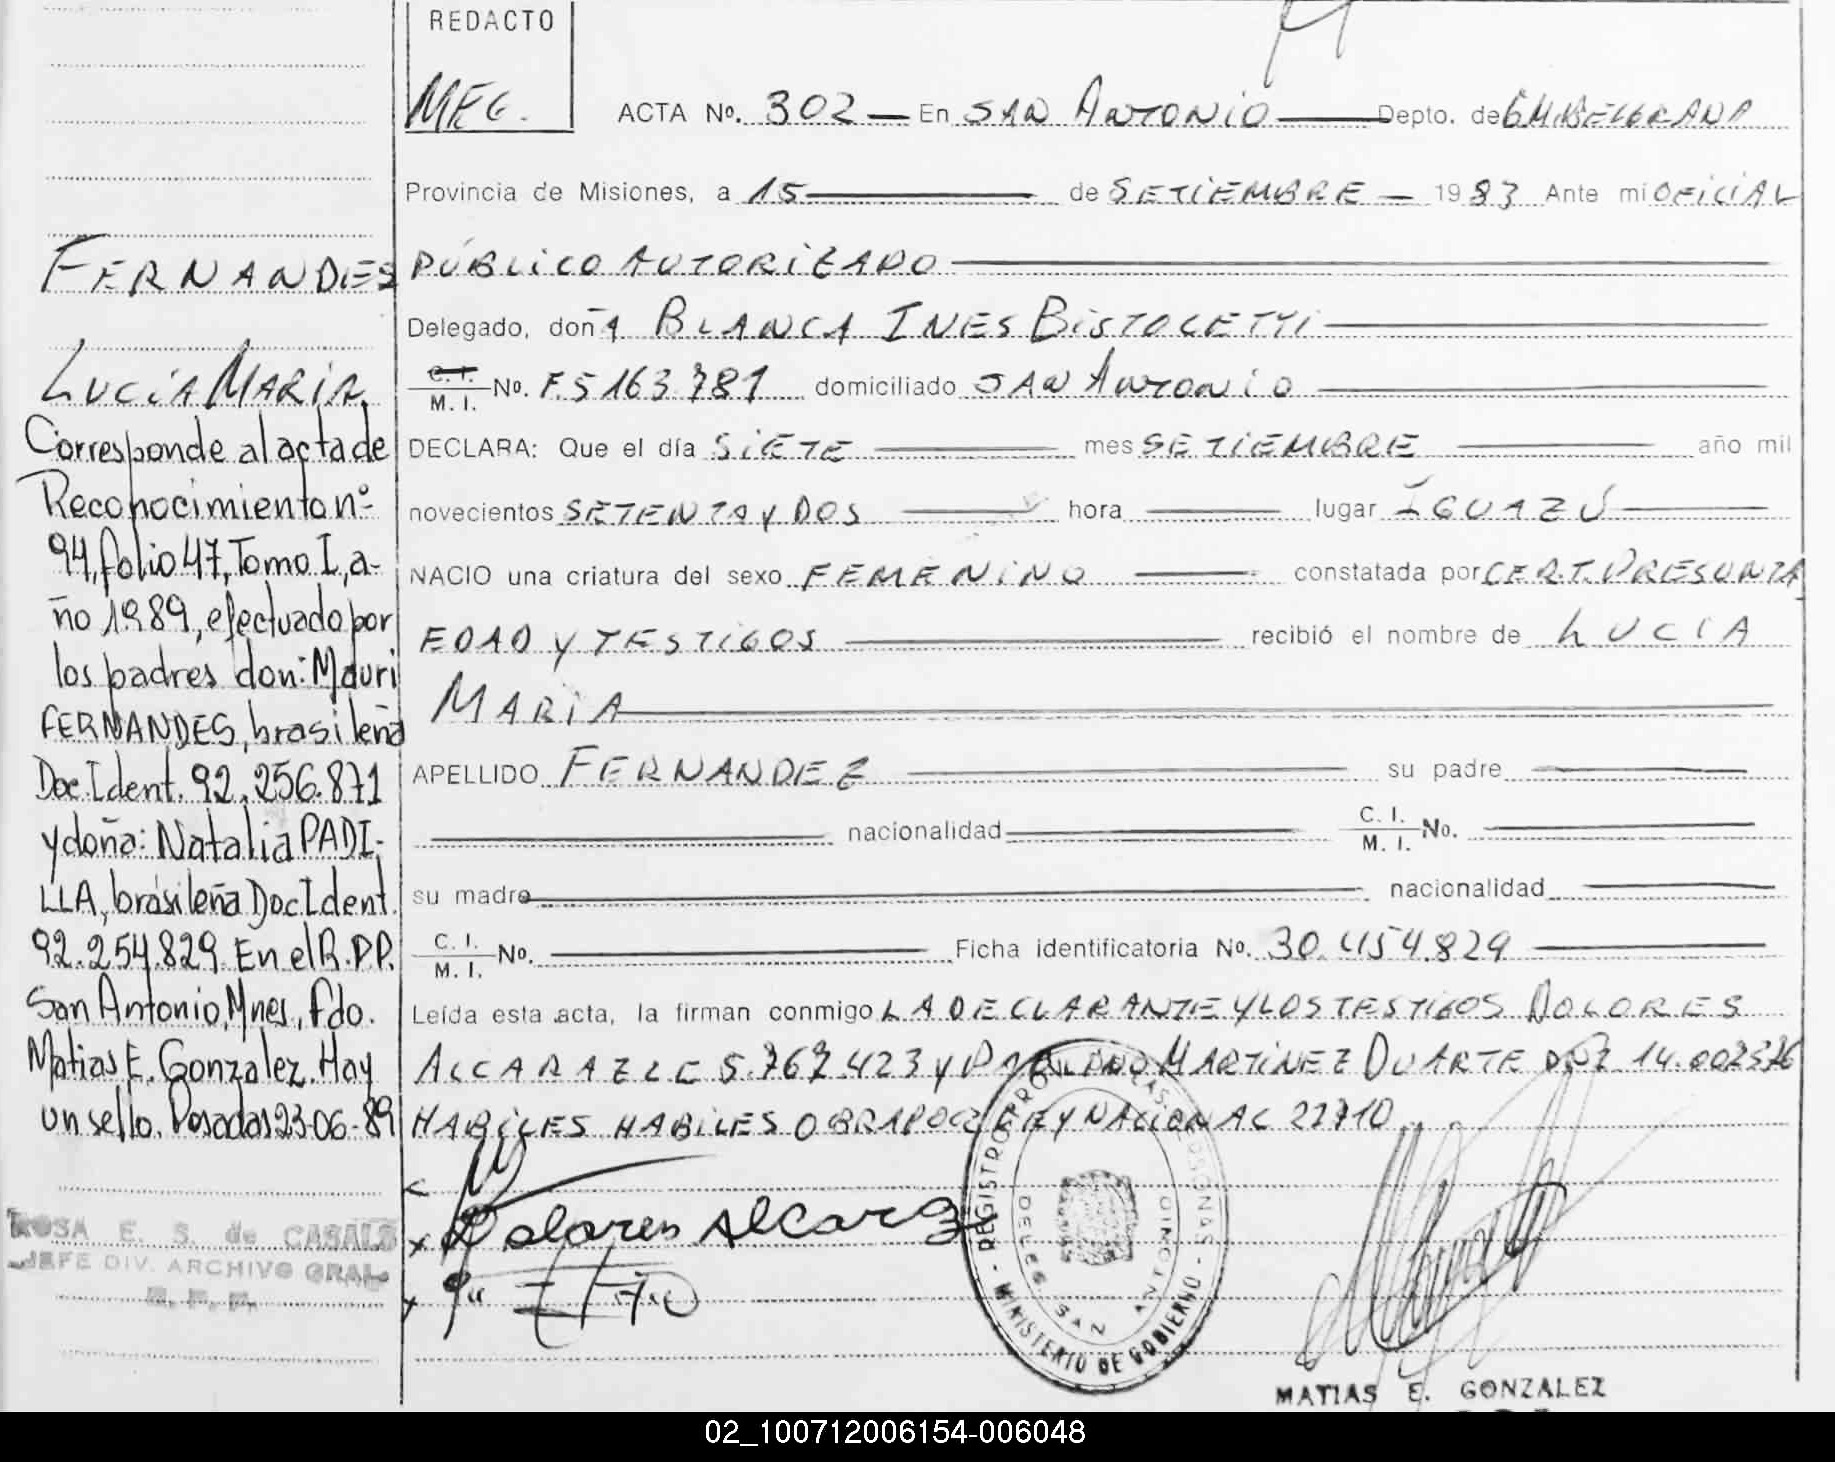 REDACTO
MEG.
ACTA Nº. 302 — En SAN ANTONIO — Depto. de GM.BELGRANO
Provincia de Misiones, a 15 — de SETIEMBRE — 1983 Ante mi OFICIAL
PÚBLICO AUTORIZADO
Delegado, doña BLANCA INES BISTOLETTI
C. I. M. I. Nº. F.5163.781 domiciliado SAN ANTONIO
DECLARA: Que el día SIETE mes SETIEMBRE año mil
novecientos SETENTA Y DOS hora lugar IGUAZÚ
NACIO una criatura del sexo FEMENINO constatada por CERT. PRESUNTA
EDAD Y TESTIGOS recibió el nombre de LUCIA
MARIA
APELLIDO FERNANDEZ su padre
nacionalidad C. I. M. I. No.
su madre nacionalidad
C. I. M. I. No. Ficha identificatoria Nº. 30.454.829
Leída esta acta, la firman conmigo LA DECLARANTE Y LOS TESTIGOS DOLORES
ALCARAZ LC 5.767.423 y MARTINEZ DUARTE DNI 14.002376
HABILES HABILES OBRA POR LEY NACIONAL 22710
Dolores Alcaraz
FERNANDES
LUCÍA MARIA
Corresponde al acta de
Reconocimiento nº
94, folio 47, Tomo I, a-
ño 1989, efectuado por
los padres don: Mauri
FERNANDES, brasileña
Doc Ident. 92.256.871
y doña: Natalia PADI-
LLA, brasileña Doc Ident.
92.254.829. En el R.P.P.
San Antonio, Mnes, Fdo.
Matias E. Gonzalez. Hay
un sello. Posadas 23-06-89
ROSA E. S. de CASALS
JEFE DIV. ARCHIVO GRAL.
R. P. P.
- REGISTRO PROV. LAS PERSONAS -
MINISTERIO DE GOBIERNO
DELEG. SAN ANTONIO
MATIAS E. GONZALEZ
02_100712006154-006048